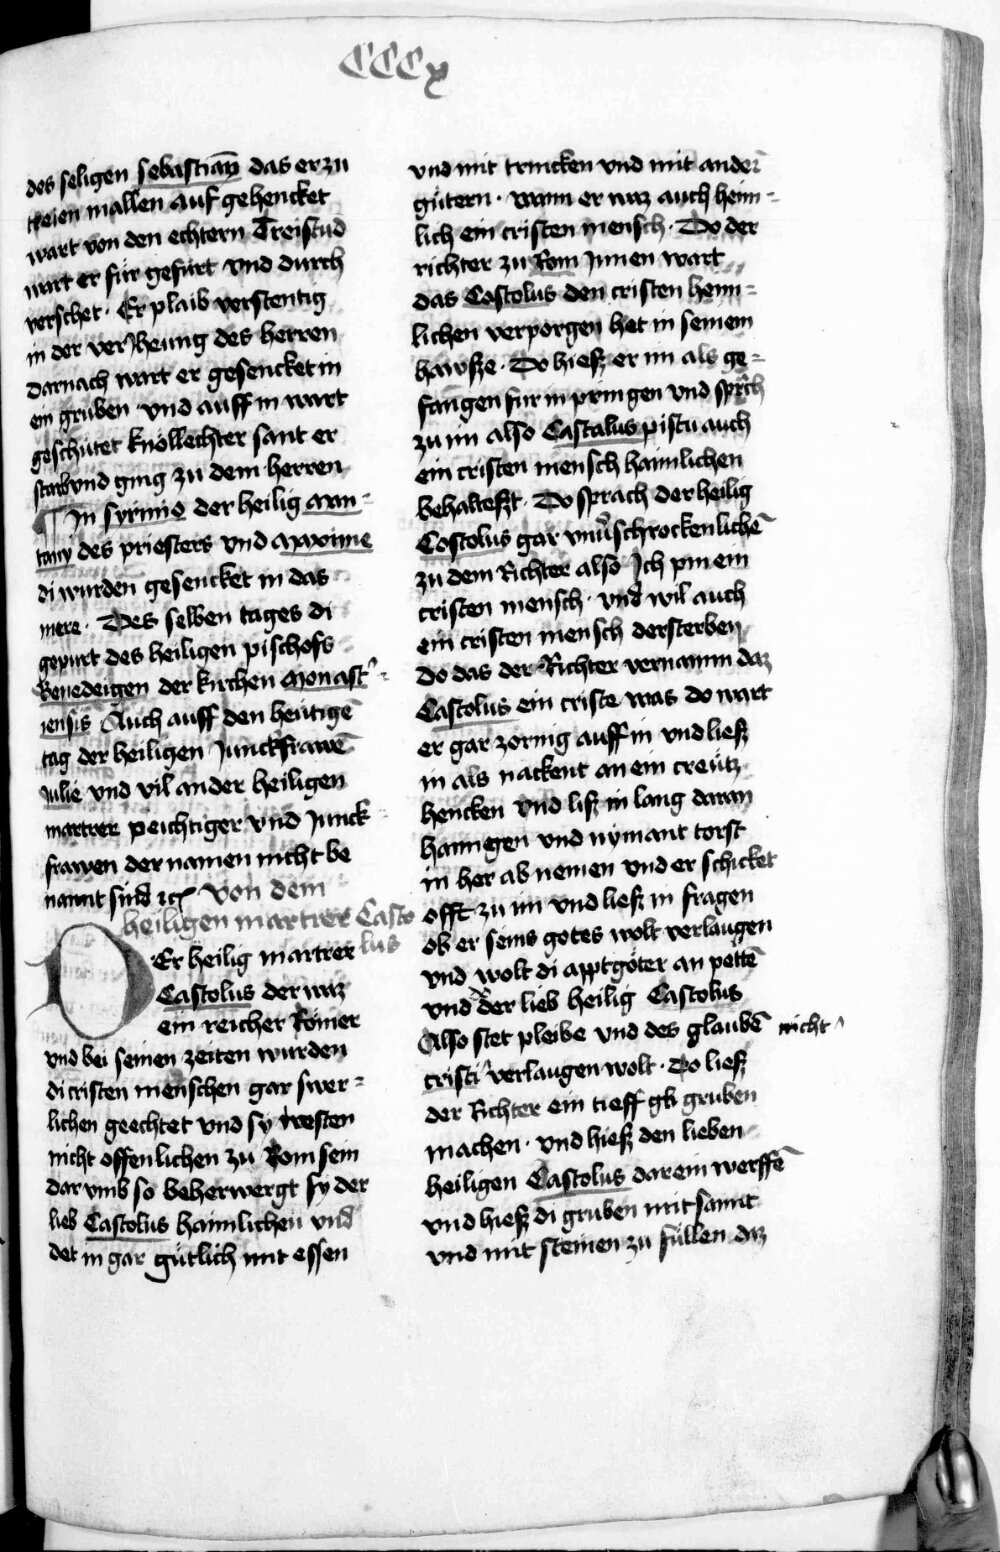 CCCx
des seligen sebastiaɳ das er zu
treien mallen auf gehencket
wart von den echtern Treistud
wart er für gefürt vnd durch
verschet · Er plaib verstentig
in der verJheung des herren
Darnach wart er gesencket in
ein gruben vnd auff in wart
geschütet knöllechter sant er
starb vnd ging zu dem herren
¶ In syrinie der heilig
des priesters vnd Maxime
di wurden gesencket in das
mere · Des selben tages di
gepurt des heiligen pischofs
Benedeigen der kirchen Monast᾽ =
iensis Auch auff den heütigē
tag der heiligen Junckfrawē
Julie vnd vil ander heiligen
martrer peichtiger vnd Junck
frawen der namen nicht be
nannt sind ꝛcꝭ Von dem
heiligen martrer Casto
lus
DEr heilig martrer
Castolus der waz
ein reicher Römer
vnd bei seinen zeiten wurden
di cristen menschen gar swer =
lichen geechtet vnd sy westen
nicht offenlichen zu Rom sein
dar vmb so beherwergt sy der
lieb Castolus haimlichen vnd
det in gar gütlich mit essen
vnd mit trincken vnd mit anderˉ
gütern · wann er waz auch heim =
lich ein cristen mensch · Do der
richter zu Rom Jnnen wart
das Castolus den cristen heim =
lichen verporgen het in seinem
hawsze · Do hiesz er im als ge =
fangen fur in pringen vnd sprch
zu im also Castalus pistu auch
ein cristen mensch haimlichen
behalteszt · Do sprach der heilig
Castolus gar vnu᾽schrockenlichē
zu dem Richter also Jch pin ein
cristen mensch · vnd wil auch
ein cristen mensch dersterben
Do das der Richter vernamm daz
Castolus ein criste was do wart
er gar zornig auff in vnd liesz
in als nackent an ein creütz
hencken vnd lisz in lang daran
hanngen vnd nymant torst
in her ab nemen vnd er schicket
offt zu im vnd liesz in fragen
ob er seins gotes wolt verlaugen
vnd wolt di apptgöter an pettē
vnd der lieb heilig Castolus
Also stet pleibe vnd des glaubē nicht ^
cristi verlaugen wolt · Do liesz
der Richter ein tieff gb gruben
machen · vnd hiesz den lieben
heiligen Castolus darein werffē
vnd hiesz di gruben mit sannt
vnd mit steinen zu füllen daz